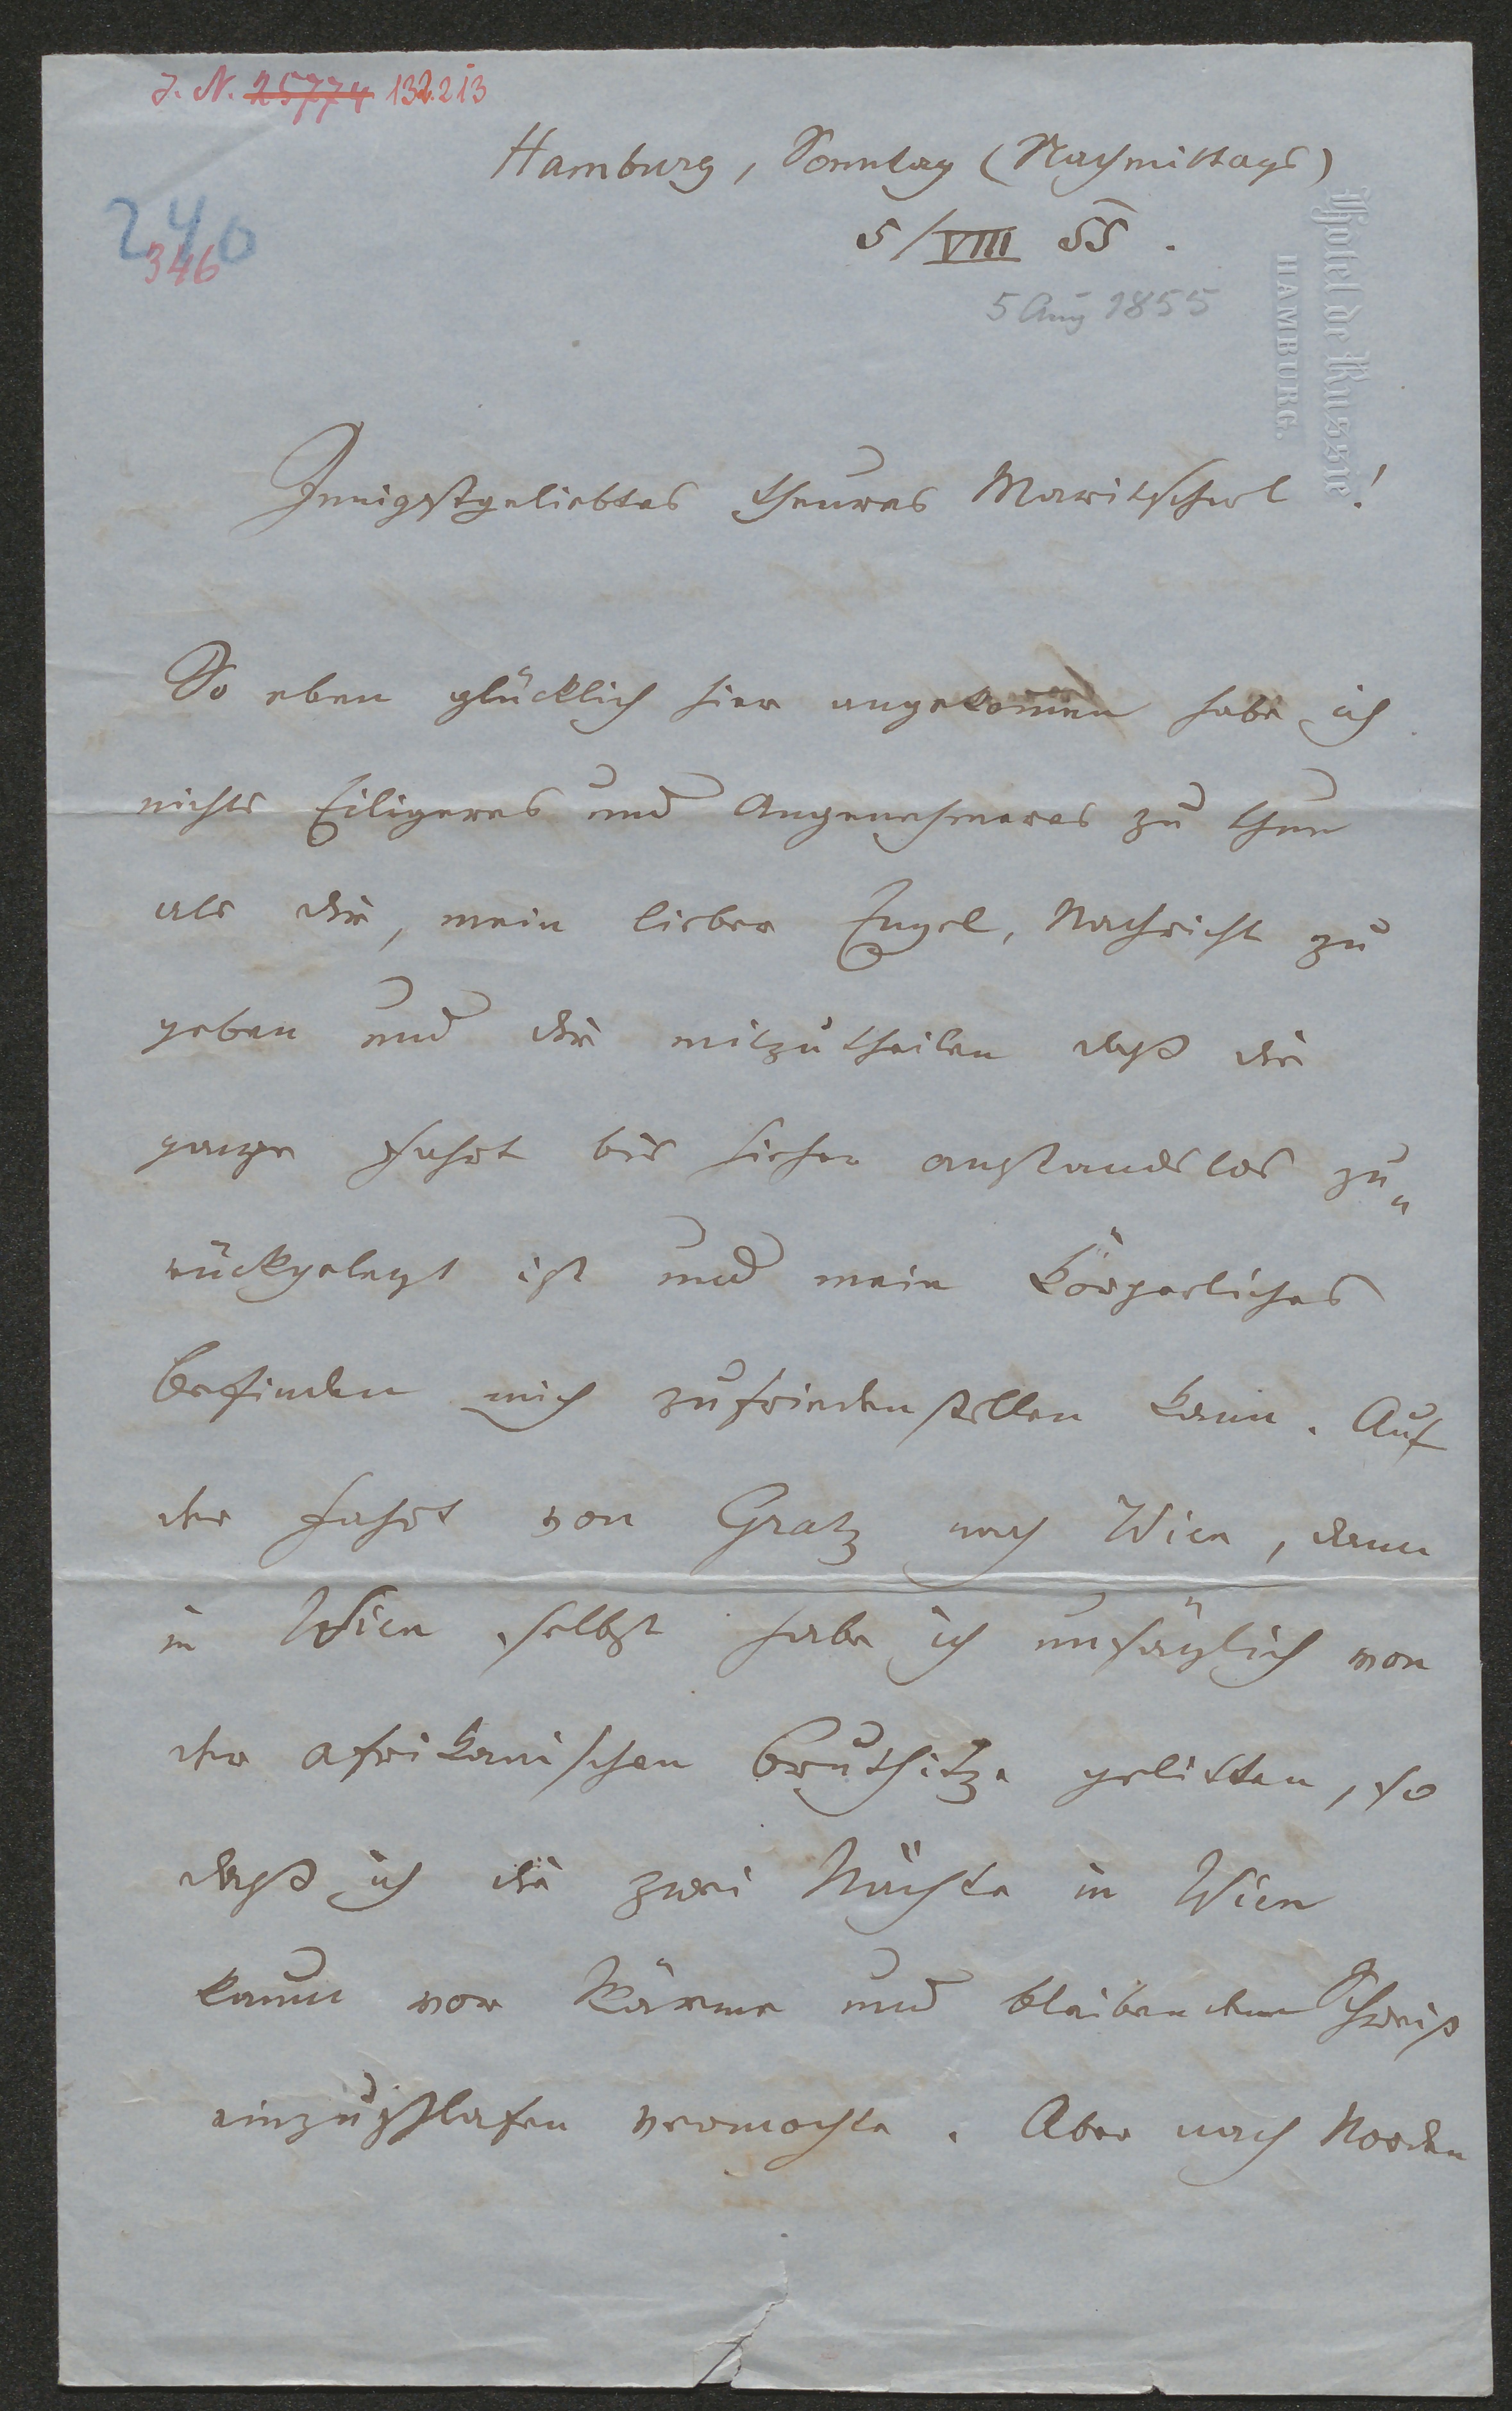 J. N. 25774 132.213
Hamburg, Sonntag (Nachmittags)
5/VIII 55.
240
346
5 Aug 1855
Hotel de Russie
HAMBURG.
Innigstgeliebtes theures Maritscherl!
So eben glücklich hier angekom̄en habe ich
nichts Eiligeres und Angenehmeres zu thun
als dir, mein lieber Engel, Nachricht zu
geben und dir mitzutheilen daß die
ganze Fahrt bis hieher anstandslos zu„
rückgelegt ist und mein körperliches
Befinden mich zufriedenstellen kann. Auf
der Fahrt von Gratz nach Wien, dann
in Wien selbst habe ich unsäglich von
der afrikanischen Bruthitze gelitten, so
daß ich die zwei Nächte in Wien
kaum vor Wärme und bleibendem Schweiß
einzuschlafen vermochte. Aber nach Norden